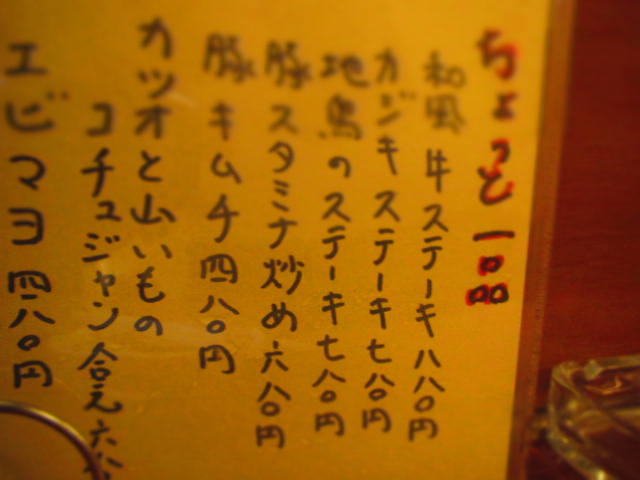 ちょっと一品
和風牛ステーキ八八〇円
カジキステーキ七八〇円
地鳥のステーキ七八〇円
豚スタミナ炒め六八〇円
豚キムチ四八〇円
カツオと山いもの
コチュジャン合え六八
エビマヨ四八〇円